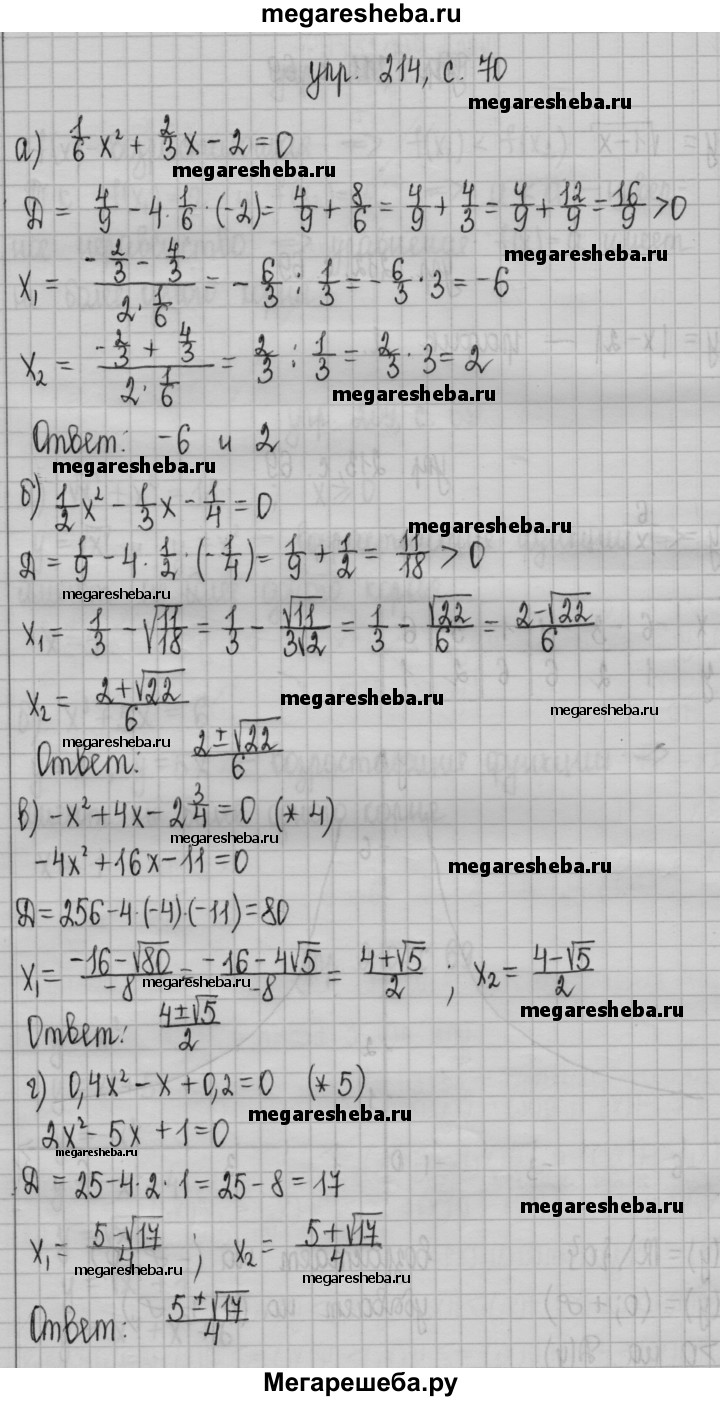 megaresheba.ru
упр. 214, с. 70
megaresheba.ru
а) 1/6 x² + 2/3 x - 2 = 0
megaresheba.ru
Д = 4/9 - 4 · 1/6 · (-2) = 4/9 + 8/6 = 4/9 + 4/3 = 4/9 + 12/9 = 16/9 > 0
megaresheba.ru
x₁ = (-2/3 - 4/3)/(2 · 1/6) = - 6/3 : 1/3 = - 6/3 · 3 = -6
x₂ = (-2/3 + 4/3)/(2 · 1/6) = 2/3 : 1/3 = 2/3 · 3 = 2
megaresheba.ru
Ответ: -6 и 2
megaresheba.ru
б) 1/2 x² - 1/3 x - 1/4 = 0
megaresheba.ru
Д = 1/9 - 4 · 1/2 · (-1/4) = 1/9 + 1/2 = 11/18 > 0
megaresheba.ru
x₁ = 1/3 - √(11/18) = 1/3 - √11/(3√2) = 1/3 - √22/6 = (2-√22)/6
x₂ = (2+√22)/6
megaresheba.ru
megaresheba.ru
megaresheba.ru
Ответ: (2±√22)/6
в) -x² + 4x - 2 3/4 = 0 (* 4)
megaresheba.ru
-4x² + 16x - 11 = 0
megaresheba.ru
Д = 256 - 4·(-4)·(-11) = 80
x₁ = (-16-√80)/-8 = (-16-4√5)/-8 = (4+√5)/2 ; x₂ = (4-√5)/2
megaresheba.ru
megaresheba.ru
Ответ: (4±√5)/2
г) 0,4x² - x + 0,2 = 0 (* 5)
megaresheba.ru
2x² - 5x + 1 = 0
megaresheba.ru
Д = 25 - 4 · 2 · 1 = 25 - 8 = 17
megaresheba.ru
x₁ = (5-√17)/4 ; x₂ = (5+√17)/4
megaresheba.ru
megaresheba.ru
Ответ: (5±√17)/4
Мегарешеба.ру